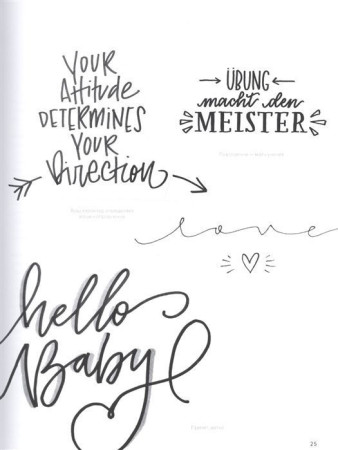 YOUR
Attitude
DETERMINES
YOUR
Direction
ÜBUNG
macht den
MEISTER
love
hello
Baby
25